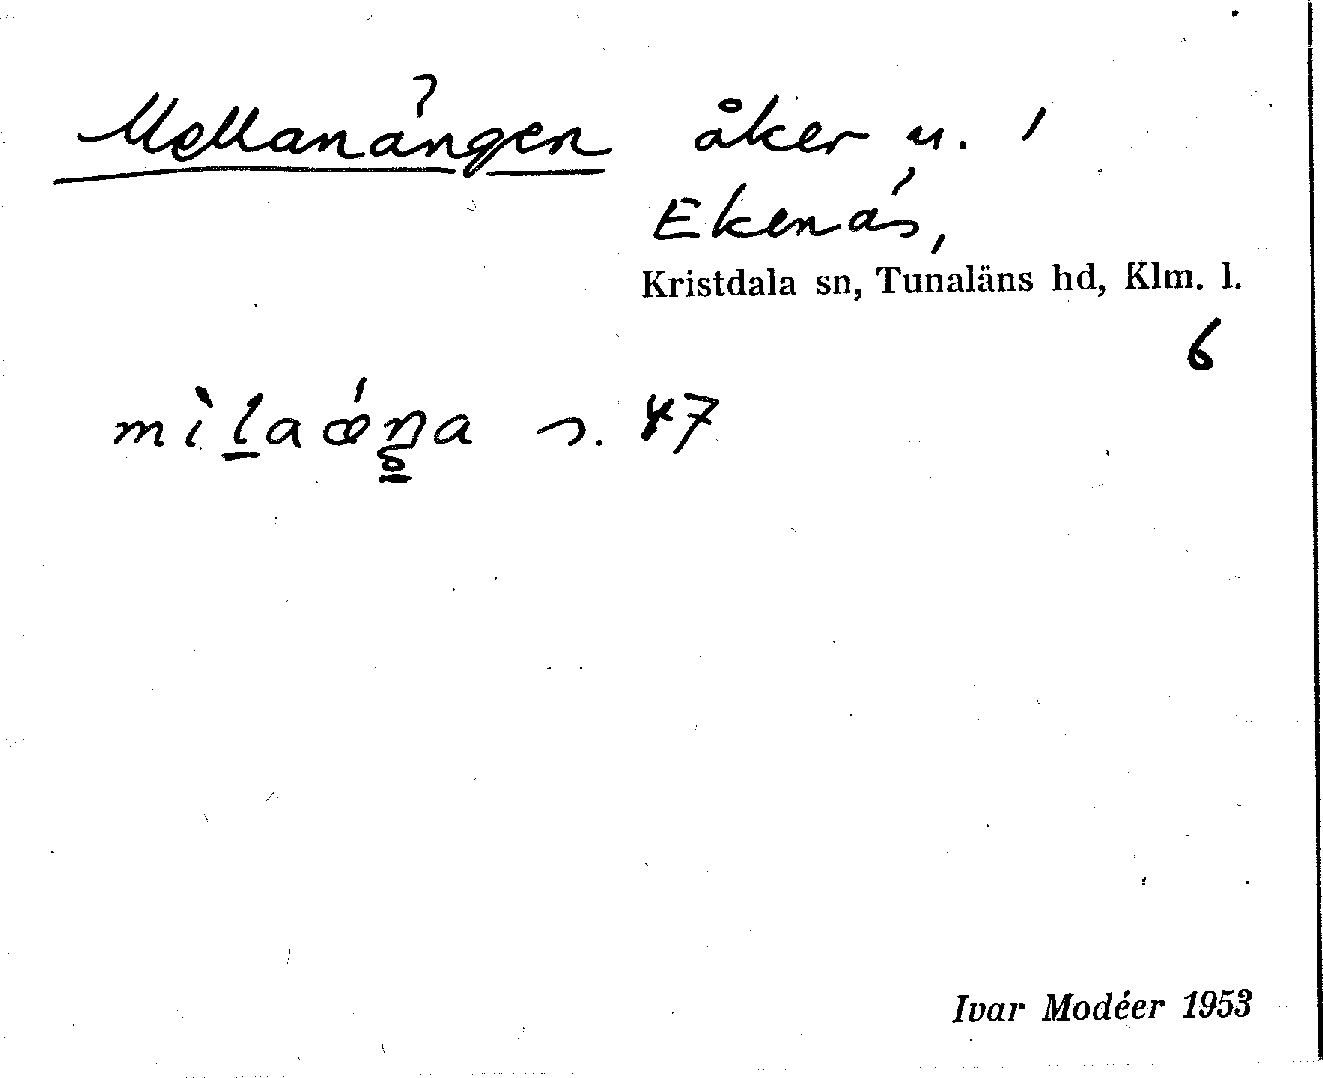 Mellanängen åker u. 1
Ekenäs,
Kristdala sn, Tunaläns hd, Klm. l.
6
mìl̠aǽŋa s. 47
Ivar Modéer 1953